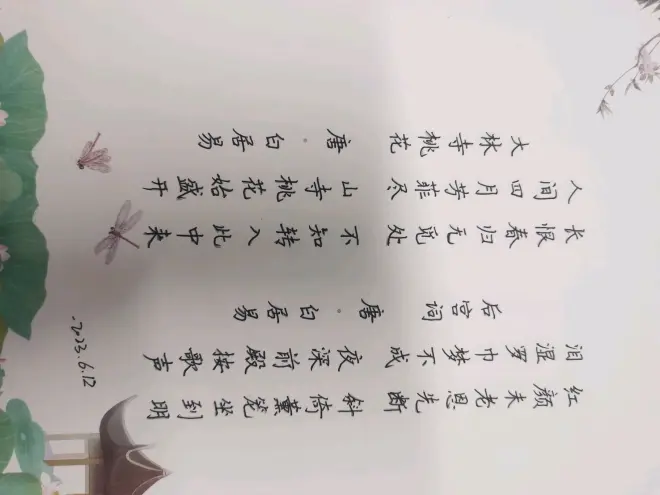 大林寺桃花 唐·白居易
人间四月芳菲尽 山寺桃花始盛开
长恨春归无觅处 不知转入此中来
后宫词 唐·白居易
泪湿罗巾梦不成 夜深前殿按歌声
红颜未老恩先断 斜倚薰笼坐到明
·2023.6.12